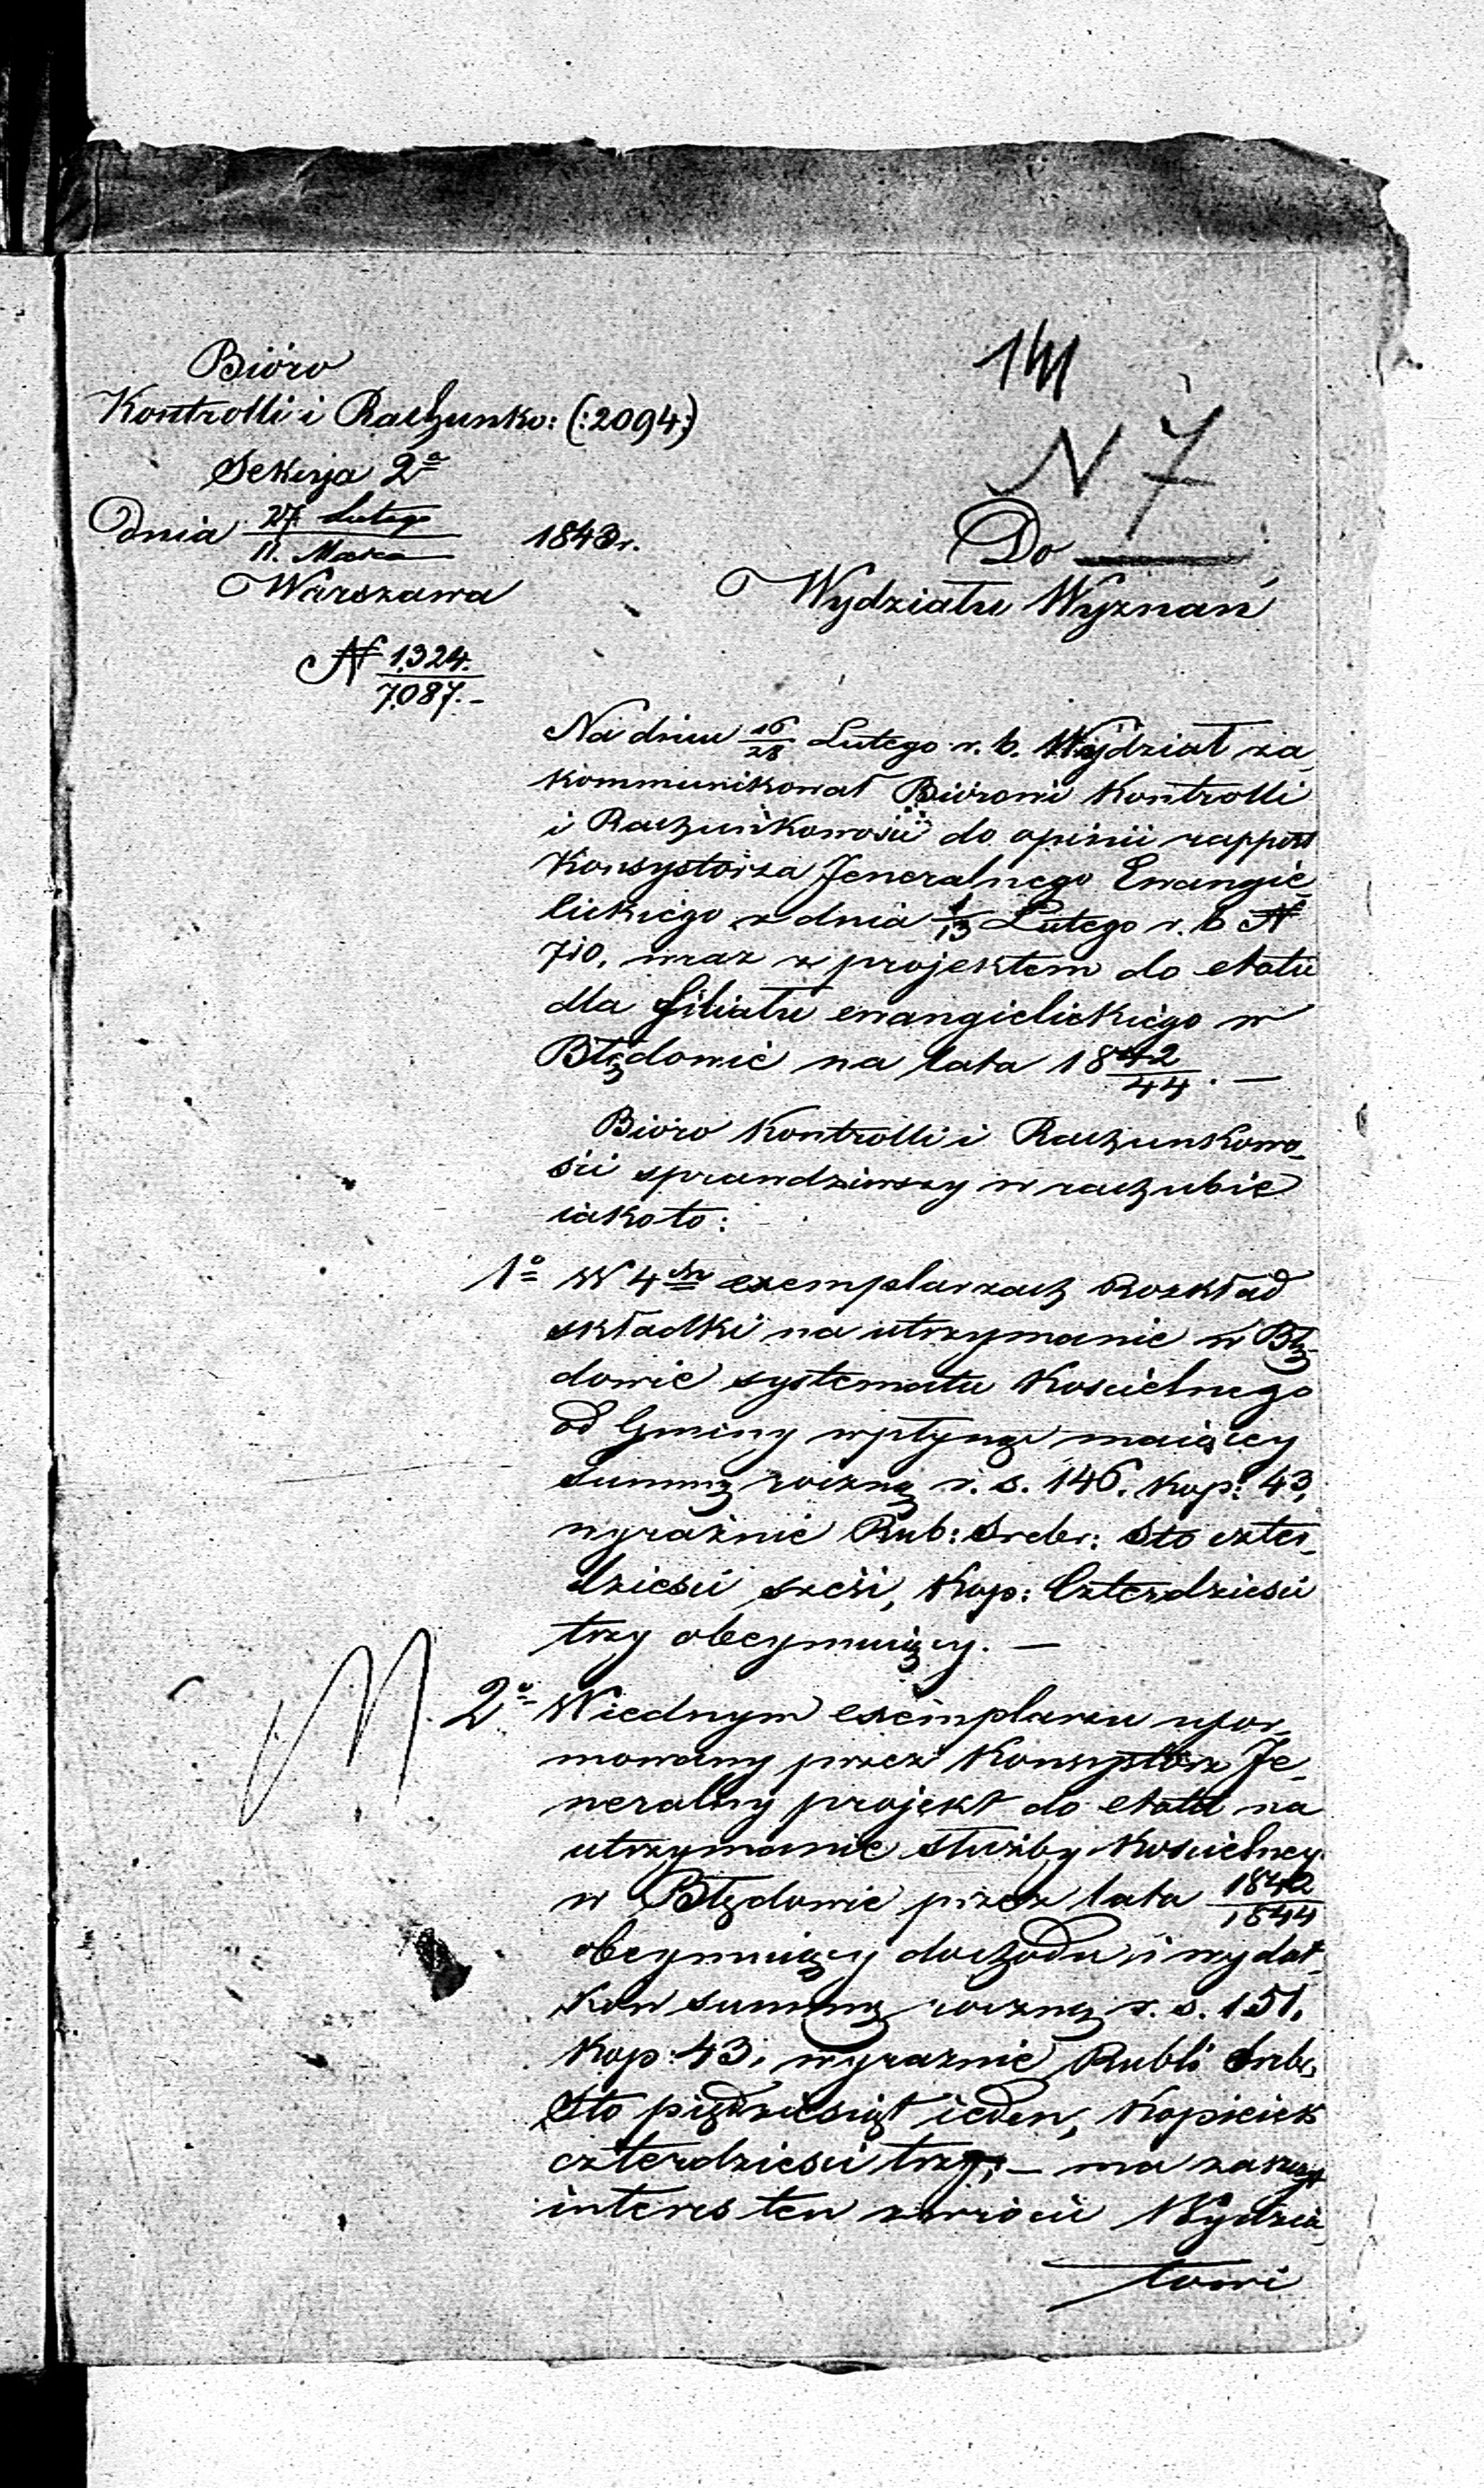 Bióro
Kontrolli i Rachunko: (:2094:)
Sekcja 2ª
Dnia 27 Lutego / 11. Marca 1843 r.
Warszawa
N 1324. / 7087.-
141
N 7
Do
Wydziału Wyznań
Na dniu 16/28 Lutego r. b. Wydział za
kommunikował Biórowi Kontrolli
i Rachunkowości do opinii rapport
Konsystorza Jeneralnego Ewangie
lickiego z dnia 1/13 Lutego r. b N
710, wraz z projektem do etatu
dla filiału ewangielickiego w
Błędowie na lata 1842/44. —
Bióro Kontrolli i Rachunkowo-
ści sprawdziwszy w rachubie
iako to:
1º W 4ch exemplarzach Rozkład
składki na utrzymanie w Błę-
dowie systematu Kościelnego
od Gminy wpłynąć maiącey
summę roczną r. s. 146. kop: 43,
wyraźnie Rub: Srebr: Sto czter-
dzieści sześć, Kop: Czterdzieści
trzy obeymuiący. —
2º W iednym exemplarzu ufor-
mowany przez Konsystorz Je-
neralny projekt do etatu na
utrzymanie służby Kościelney
w Błędowie przez lata 1842/1844
obeymuiący dochodu i wydat-
ków summę roczną r. s. 151.
Kop: 43. wyraźnie Rubli Srebr,
Sto pięćdziesiąt ieden, Kopieiek
czterdzieści trzy; — ma zaszczyt
interes ten zwrócić Wydzia
łowi